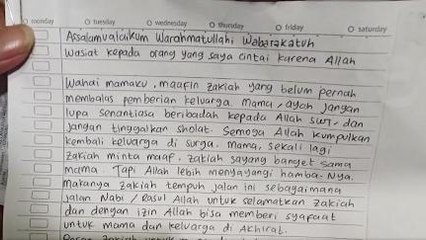 monday tuesday wednesday thursday friday saturday
Assalamualaikum Warahmatullahi Wabarakatuh
Wasiat kepada orang yang saya cintai karena Allah
Wahai mamaku, maafin zakiah yang belum pernah
membalas pemberian keluarga. mama, ayah jangan
lupa senantiasa beribadah kepada Allah SWT, dan
jangan tinggalkan sholat. Semoga Allah kumpulkan
kembali keluarga di surga. mama, sekali lagi
zakiah minta maap, zakiah sayang banget sama
mama. Tapi Allah lebih menyayangi hamba-Nya.
makanya zakiah tempuh jalan ini sebagaimana
jalan Nabi / Rasul Allah untuk selamatkan zakiah
dan dengan izin Allah bisa memberi syafaat
untuk mama dan keluarga di Akhirat.